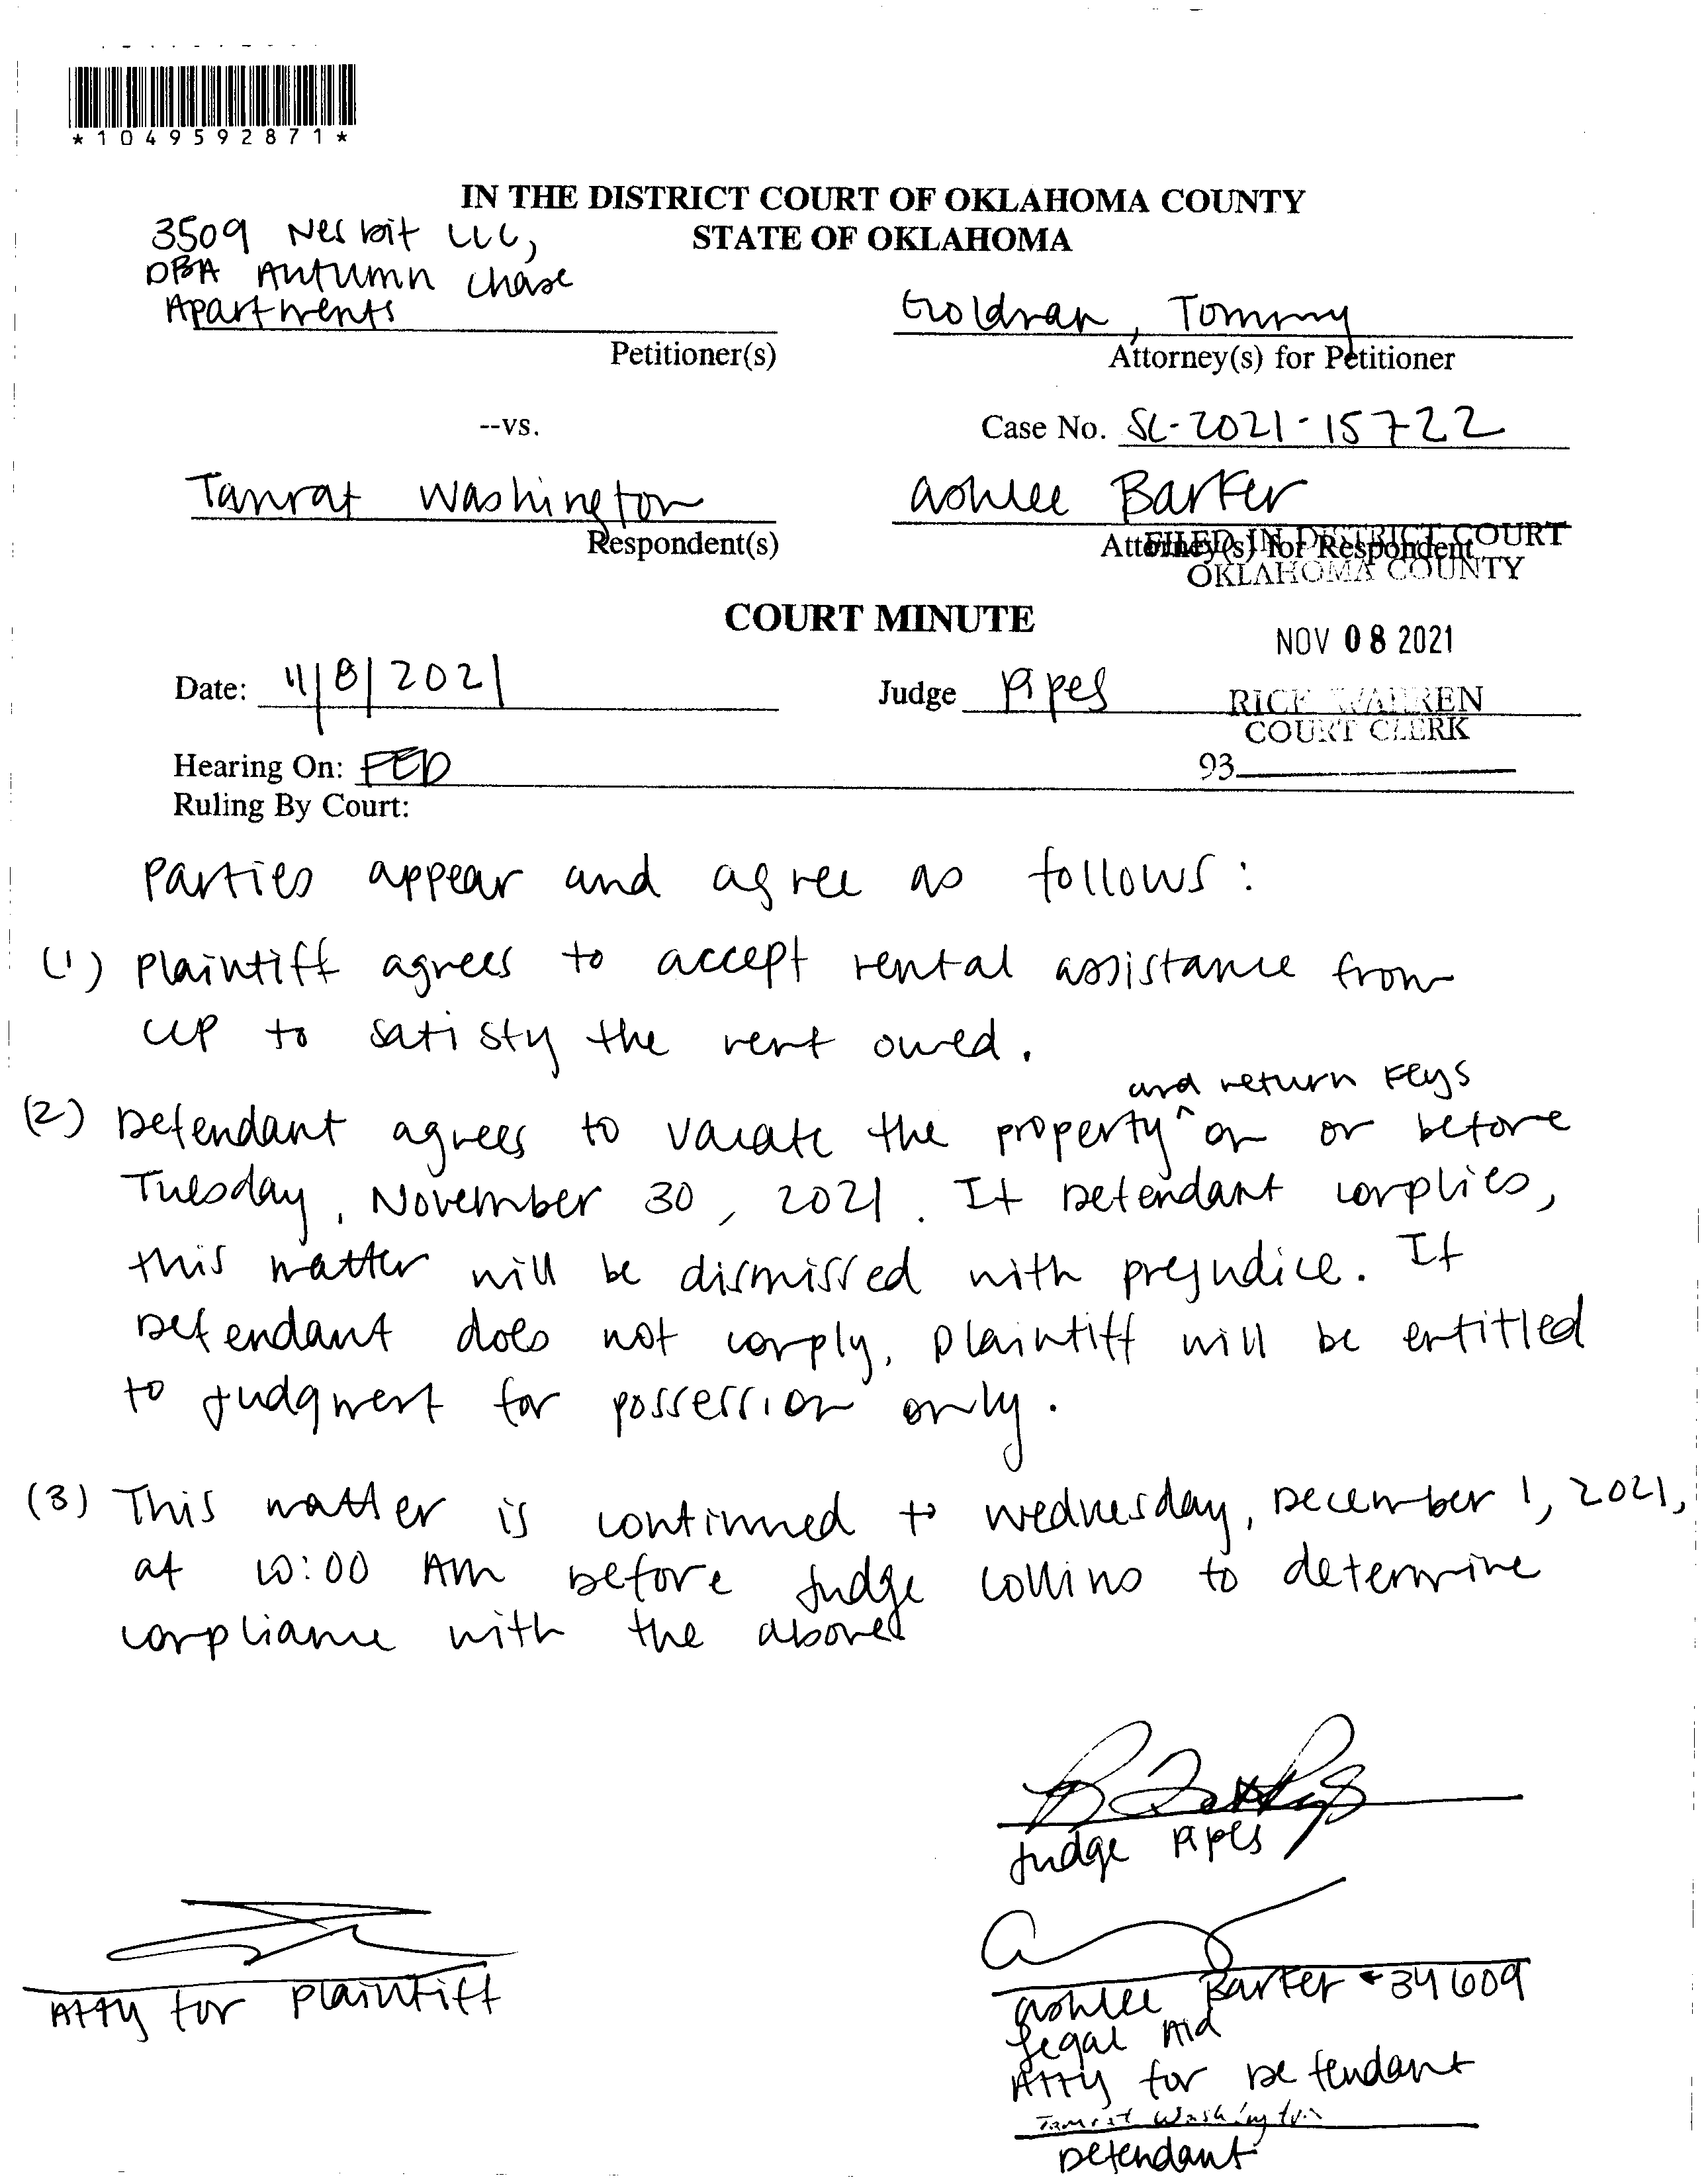 *1049592871*
IN THE DISTRICT COURT OF OKLAHOMA COUNTY
STATE OF OKLAHOMA
3509 Nesbit LLC,
DBA Autumn Chase
Apartments
Petitioner(s)
Goldman, Tommy
Attorney(s) for Petitioner
--vs.
Case No. SC-2021-15722
Tamrat Washington
Respondent(s)
Ashlee Barker
Attorney(s) for Respondent
FILED IN DISTRICT COURT
OKLAHOMA COUNTY
COURT MINUTE
NOV 08 2021
Date: 11/8/2021
Judge Pipes
RICK WARREN
COURT CLERK
93
Hearing On: FED
Ruling By Court:
Parties appear and agree as follows:
(1) Plaintiff agrees to accept rental assistance from
CCP to satisfy the rent owed.
and return keys
(2) Defendant agrees to vacate the property ^ on or before
Tuesday, November 30, 2021. If Defendant complies,
this matter will be dismissed with prejudice. If
Defendant does not comply, Plaintiff will be entitled
to judgment for possession only.
(3) This matter is continued to Wednesday, December 1, 2021,
at 10:00 AM before Judge Collins to determine
compliance with the above.
Judge Pipes
Atty for Plaintiff
Ashlee Barker #34609
Legal Aid
Atty for Defendant
Tamrat Washington
Defendant